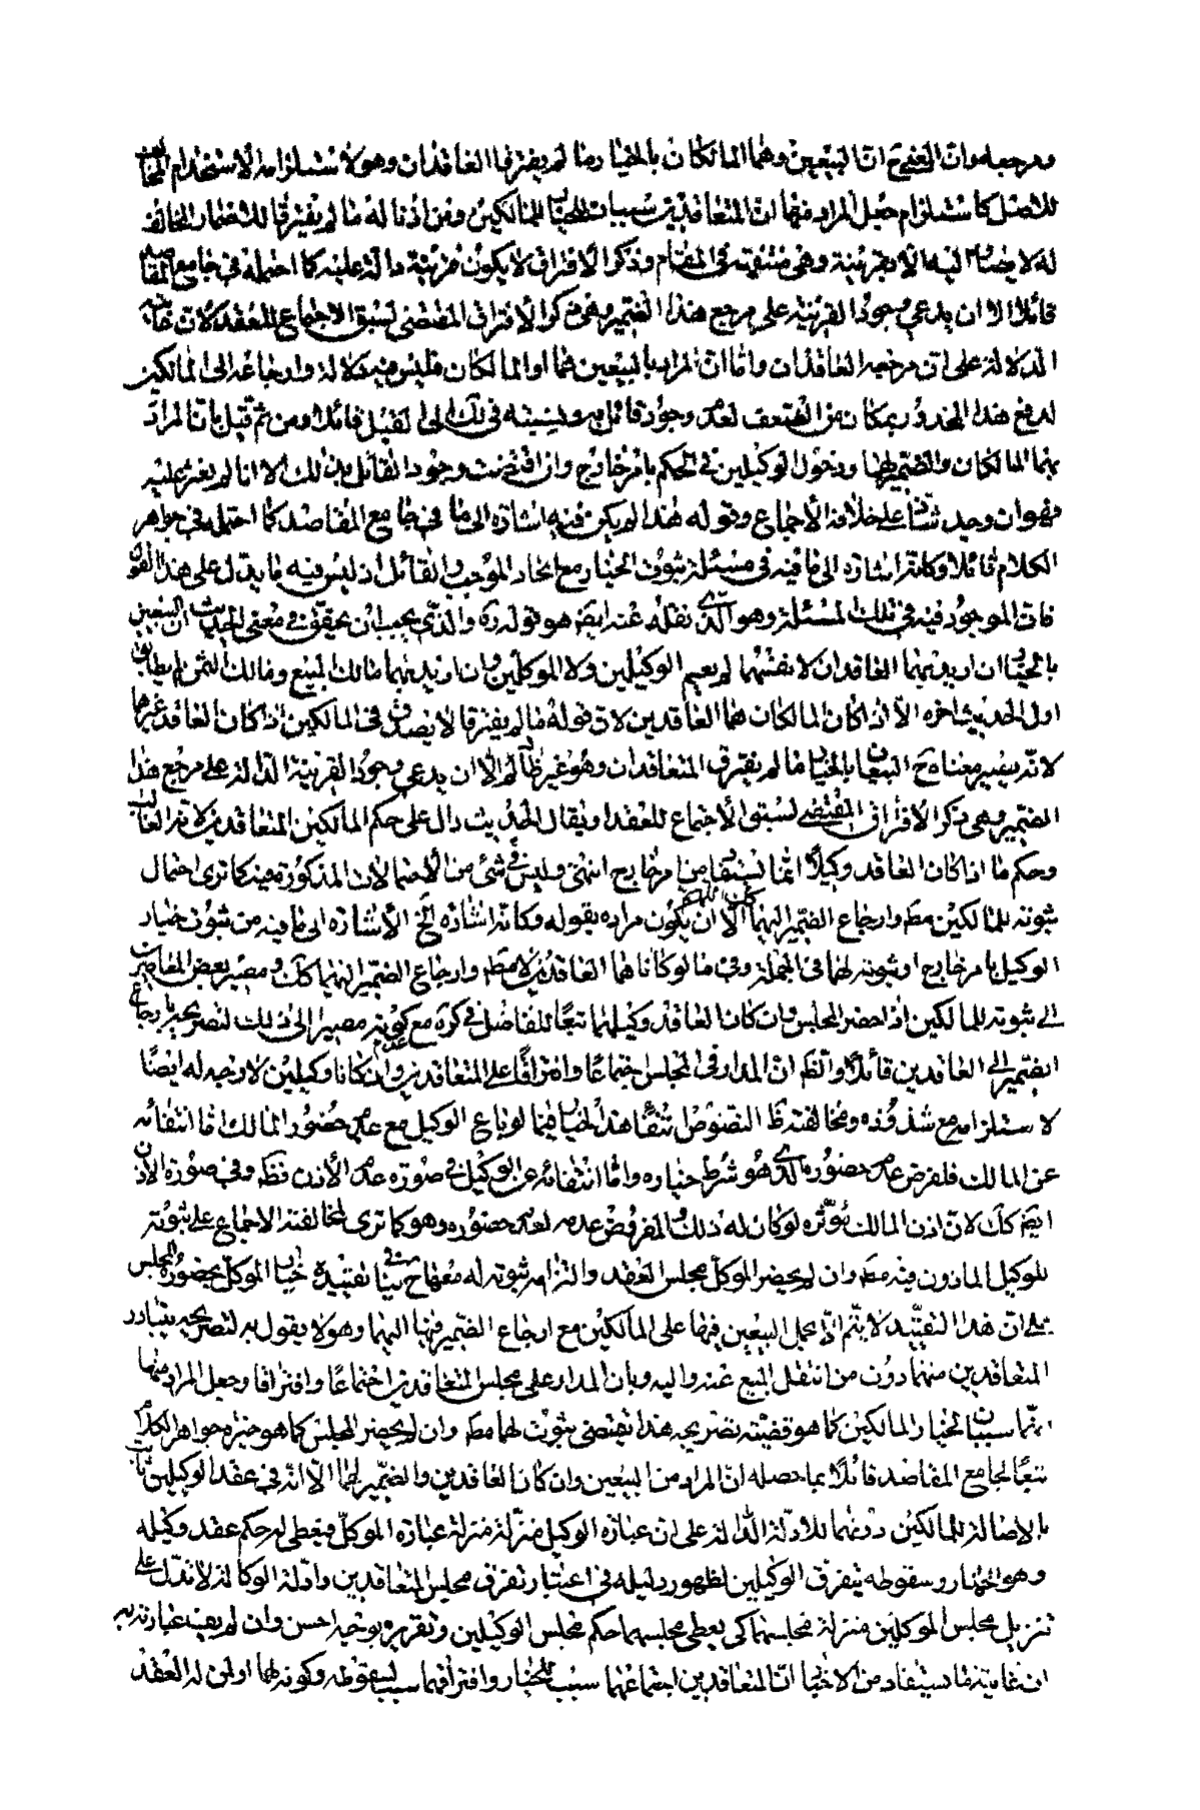 ومرجعه وان المعنى ح ان البيعين وهما المالكان بالخيار ما لم يفترقا العاقدان وهو لاستلزامه الاستخدام المخالف
للاصل كاستلزام جعل المراد منهما ان المتعاقدين سببان للخيار للمالكين ومن اذنا له ما لم يفترقا للاضمار المخالف
له لا يصار اليه الا بقرينة وهى منتفية فى المقام وذكر الافتراق لا يكون قرينة دالة عليه كما احتمله فى جامع المقاصد
قائلا الا ان يدعى وجود القرينة على مرجع هذا الضمير وهى ذكر الافتراق المقتضى لسبق الاجتماع للعقد لان غايته
الدلالة على ان مرجعه العاقدان واما ان المراد بالبيعين هما او المالكان فليس فيه دلالة وارجاعه الى المالكين
لدفع هذا المحذور بمكان من الضعف لعدم وجود قائل به ونسبته فى تلك الى القيل قائلا ومن ثم قيل بان المراد
بهما المالكان والضمير لهما ودخول الوكيلين فى الحكم بامر خارج وان اقتضت وجود القائل بذلك الا انا لم نعثر عليه
فهو ان وجد شاذ على خلافه الاجماع وقوله هذا لم يكن فيه اشارة الى ما فى جامع المقاصد كما احتمله فى جواهر
الكلام قائلا وكانه اشارة الى ما فيه فى مسئلة ثبوت الخيار مع اتحاد الموجب والقابل اذ ليس فيه ما يدل على هذا القول
فان الموجود فيه فى تلك المسئلة وهو الذى نقله عنه ايضا هو قوله ره والذى يجب ان يحقق فى معنى الحديث ان البيعين
بالخيار ان اريد بهما العاقدان لانفسهما لم يعم الوكيلين ولا الموكلين وان اريد بهما مالك المبيع ومالك الثمن لم يطابق
اول الحديث اخره الا اذا كان المالكان هما العاقدين لان قوله ما لم يفترقا لا يصدق فى المالكين اذا كان العاقد غيرهما
لانه يصير معناه ح البيعان بالخيار ما لم يفترق المتعاقدان وهو غير ظاهر الا ان يدعى وجود القرينة الدالة على مرجع هذا
الضمير وهى ذكر الافتراق المقتضى لسبق الاجتماع للعقد او يقال الحديث دال على حكم المالكين المتعاقدين لانه الغالب
وحكم ما اذا كان العاقد وكيلا انما يستفاد من امر خارج انتهى وليس فى شئ من الاحتمالات المذكورة فيه كما ترى احتمال
ثبوته للمالكين مط وارجاع الضمير اليهما كك اللهم الا ان يكون مراده بقوله وكانه اشارة الخ الاشارة الى ما فيه من ثبوت خيار
الوكيل بامر خارج او ثبوته لهما فى الجملة وفى ما لو كانا هما العاقدين لا مط وارجاع الضمير اليهما كك ومصير بعض المعاصرين
الى ثبوته للمالكين اذا حضر المجلس وان كان العاقد وكيلهما تبعا للفاضل فى كره مع عدم كونه مصيرا الى ذلك لتصريحه بارجاع
الضمير الى العاقدين قائلا والظ ان المدار فى المجلس اجتماعا وافتراقا على المتعاقدين وان كانا وكيلين لا وجه له ايضا
لاستلزامه مع شذوذه ومخالفته ظ النصوص انتفاء هذا الخيار فيما لو باع الوكيل مع عدم حضور المالك اما انتفائه
عن المالك فلفرض عدم حضوره الذى هو شرط خياره واما انتفائه عن الوكيل فى صورة عدم الاذن فظ وفى صورة الاذن
ايضا كك لان اذن المالك تؤثره لو كان له ذلك والمفروض عدمه لعدم حضوره وهو كما ترى لمخالفته الاجماع على ثبوته
للوكيل الماذون فيه مط وان لم يحضر الموكل مجلس العقد والتزامه ثبوته له معهما ح ينافى تقييده خيار الموكل بحضوره المجلس
على ان هذا التقييد لا يتم اذا حمل البيعين فيها على المالكين مع ارجاع الضمير فيها اليهما وهو لا يقول به لتصريحه بتبادر
المتعاقدين منهما دون من انتقل المبيع عنه واليه وبان المدار على مجلس المتعاقدين اجتماعا وافتراقا وجعل المراد منهما
انهما سببان لخيار المالكين كما هو قضية تصريحه هذا يقتضى ثبوته لهما مط وان لم يحضر المجلس كما هو خيرة جواهر الكلام
تبعا لجامع المقاصد قائلا بما حصله ان المراد من البيعين وان كان العاقدين والضمير لهما الا انه فى عقد الوكيلين ثابت
بالاصالة للمالكين دونهما للادلة الدالة على ان عبارة الوكيل منزلة منزلة عبارة الموكل فيعطى له حكم عقد وكيله
وهو الخيار وسقوطه بتفرق الوكيلين لظهور دليله فى اعتبار تفرق مجلس المتعاقدين وادلة الوكالة لا تدل على
تنزيل مجلس الموكلين منزلة مجلسهما كى يعطى مجلسهما حكم مجلس الوكيلين وتقريره بوجه احسن وان لم يعنه عبارته به
ان غاية ما يستفاد من الاخبار ان المتعاقدين اجتماعهما سبب للخيار وافتراقهما سبب لسقوطه وكونه لهما او لمن له العقد